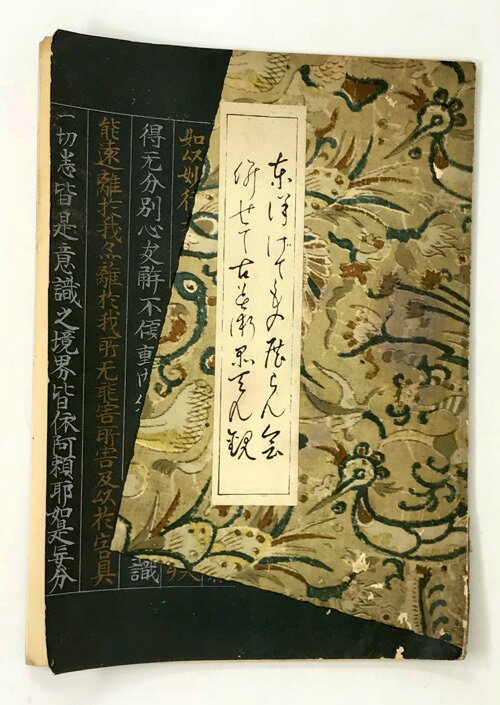 東洋げてもの展らん会
併せて古美術
如以妙
得无分別心 解不傾動内
能速離於我亦離於我所无能害所害及以於害具
一切悉皆是意識之境界皆依阿頼耶如是妄分
識